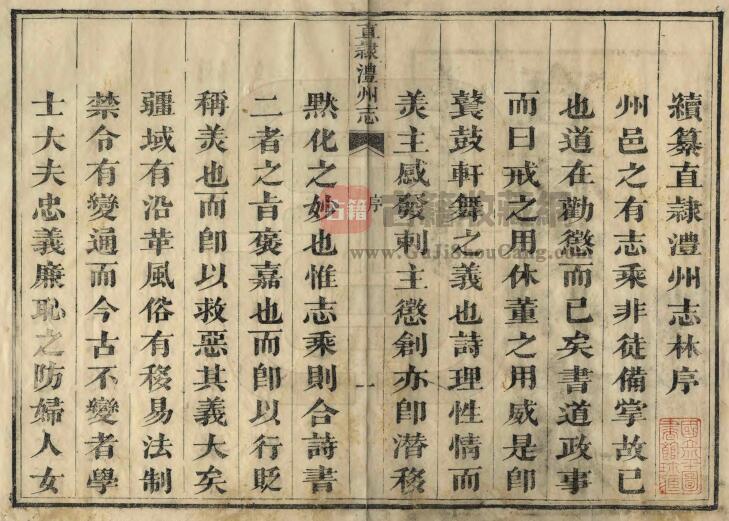 續纂直隸澧州志林序
州邑之有志乘非徒備掌故已
也道在勸懲而已矣書道政事
而曰戒之用休董之用威是卽
鼗鼓軒舞之義也詩理性情而
美主感發刺主懲創亦卽潛移
直隸澧州志
序
一
默化之妙也惟志乘則合詩書
二者之㫖褒嘉也而卽以行貶
稱美也而卽以救惡其義大矣
疆域有沿革風俗有移易法制
禁令有變通而今古不變者學
士大夫忠義廉恥之防婦人女
古籍
www.GuJiShouCang.com